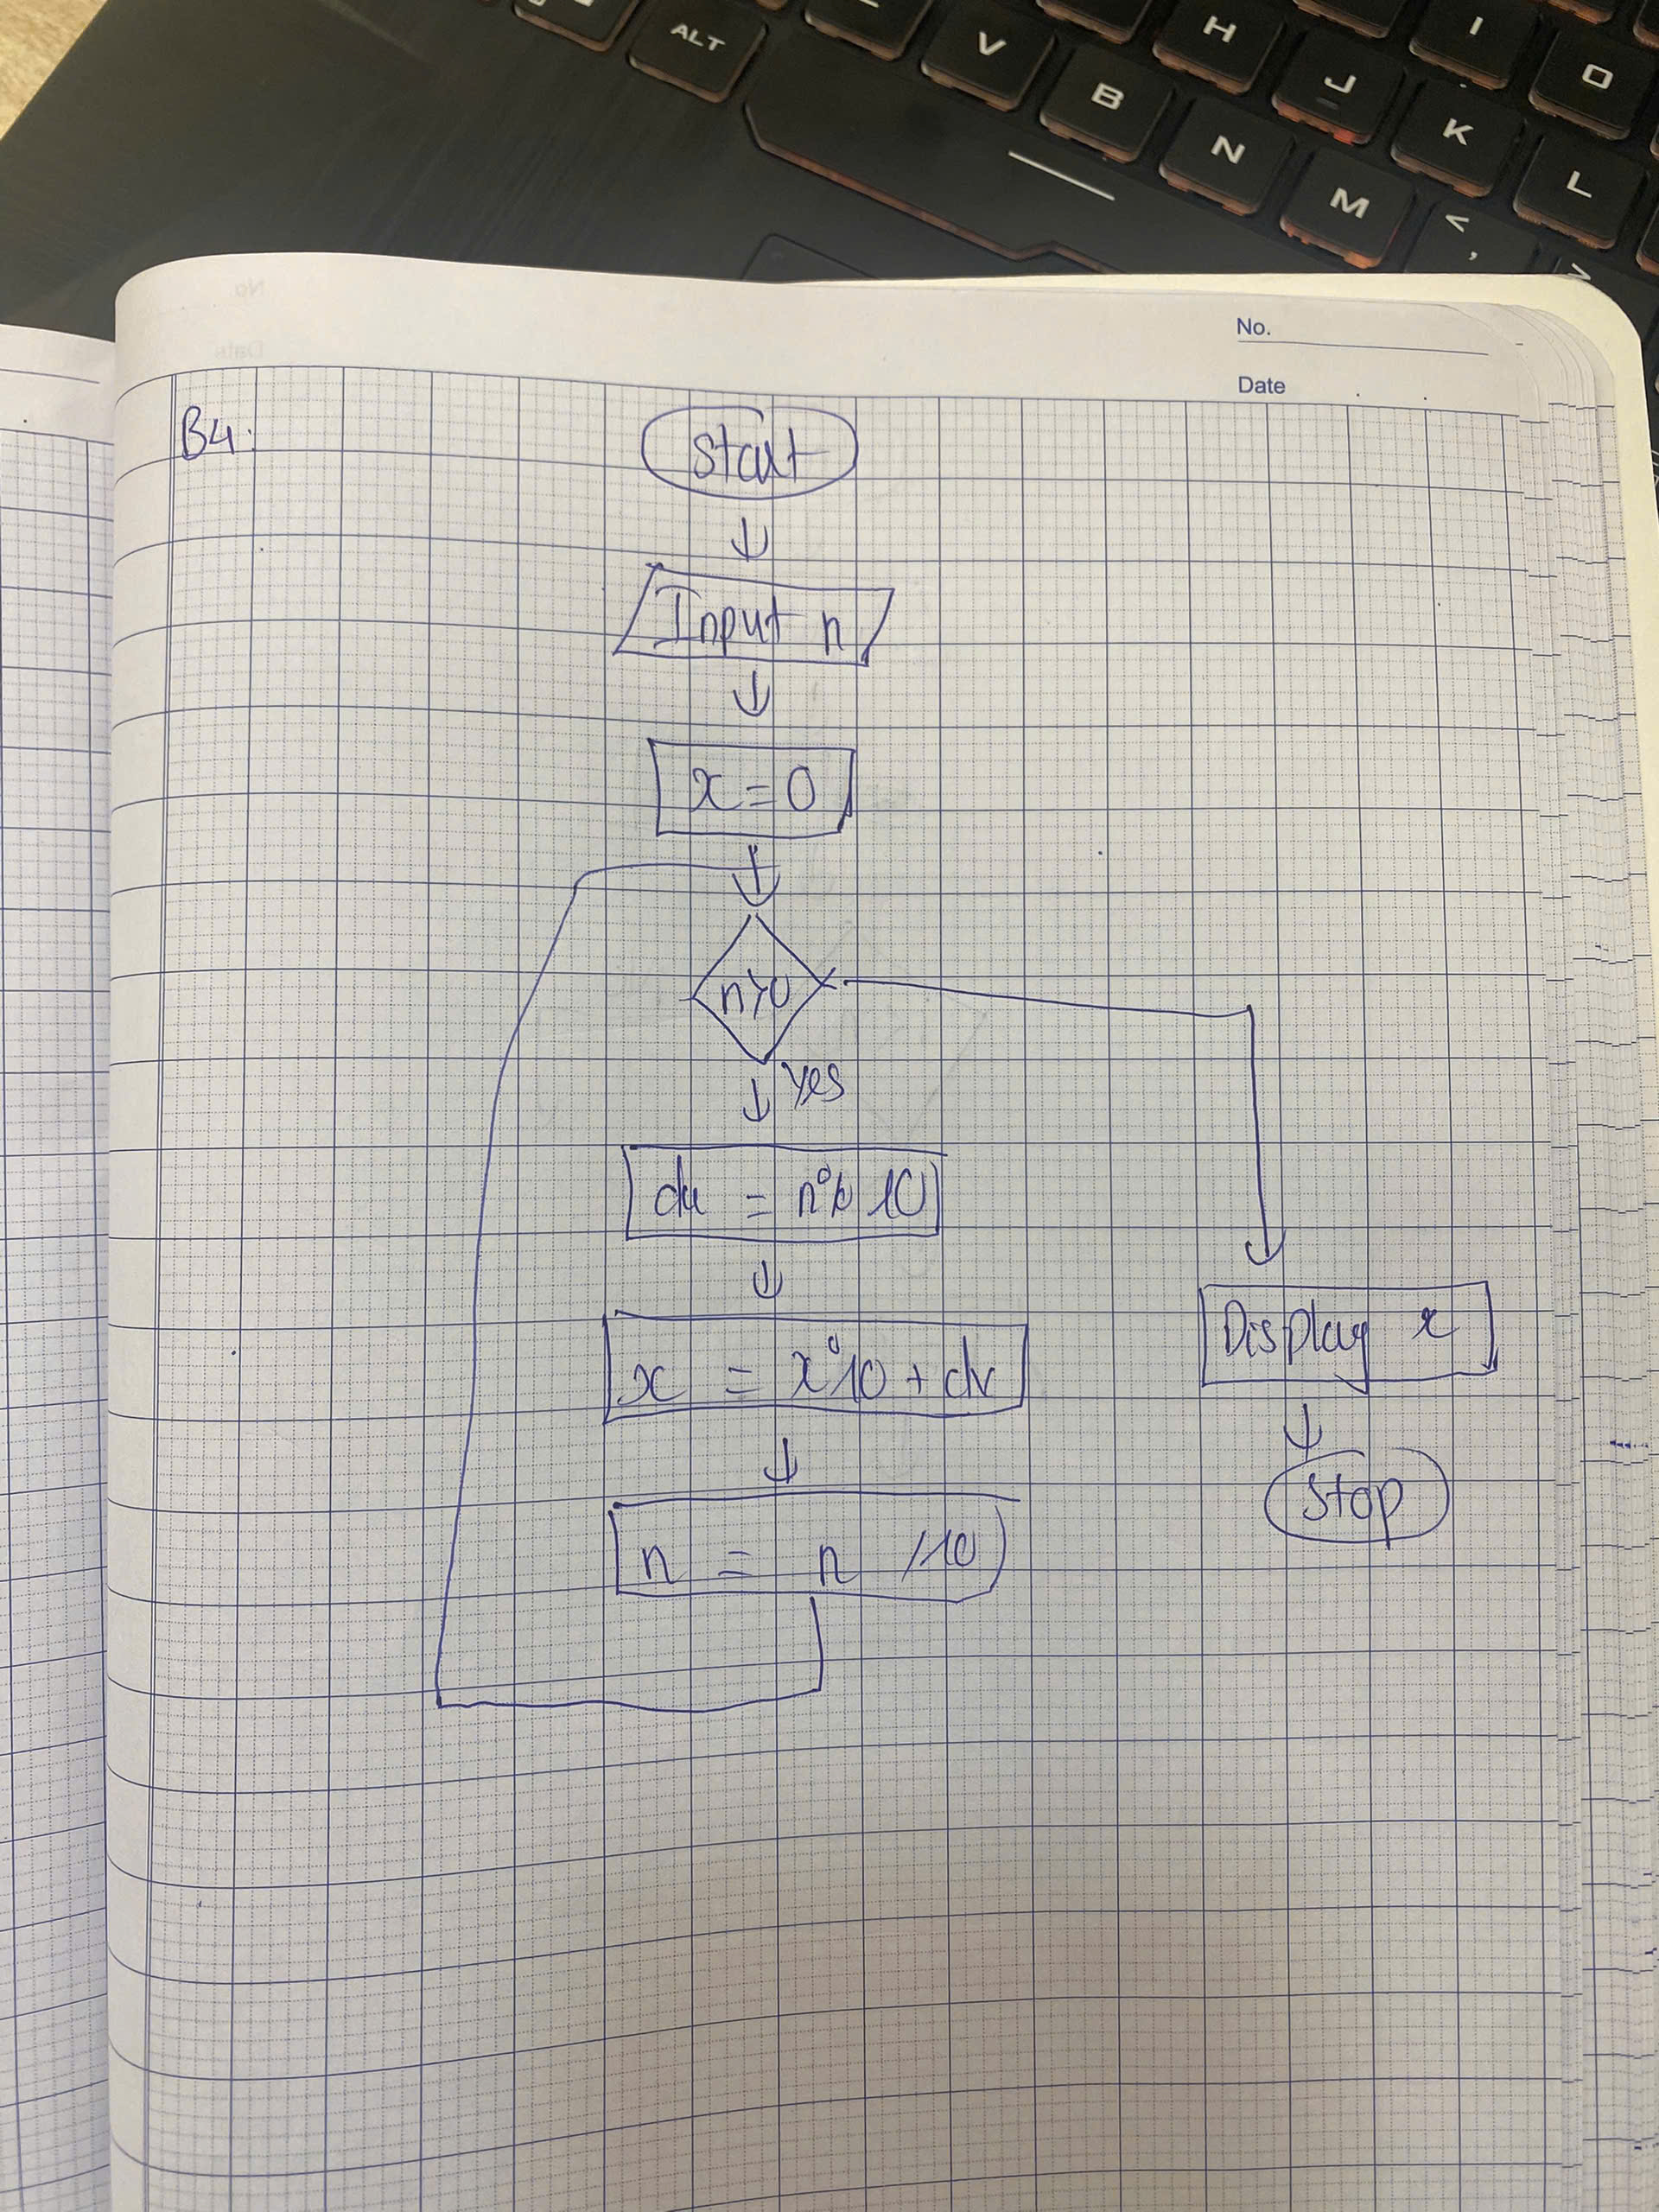 ALT
V
B
N
M
H
J
K
L
I
O
<
,
No.
Date
B4:
Start
Input n
x=0
n>0
Yes
du = n%10
x = x°10 + du
n = n /10
Display x
Stop